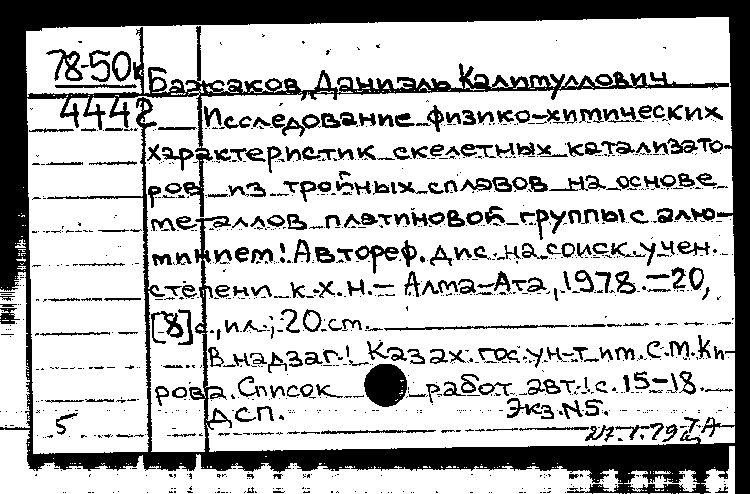 78-50к
4442
Бажсаков, Даниэль Калимуллович.
Исследование физико-химических
характеристик скелетных катализато-
ров из тройных сплавов на основе
металлов платиновой группы с алю-
минием: Автореф. дис. на соиск. учен.
степени к.х.н.- Алма-Ата, 1978.-20,
[8] с., ил.; 20 см.
В надзаг.: Казах. гос. ун-т им. С.М. Ки-
рова. Список работ авт.: с. 15-18.
ДСП. Экз. N5.
5